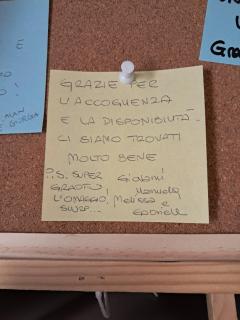 E
O!
MAN
E GIORGIA
GRAZIE PER
L'ACCOGLIENZA
E LA DISPONIBILITÀ
CI SIAMO TROVATI
MOLTO BENE
P.S. SUPER
GRADITO
L'OMAGGIO,
Giovanni
Manuela
Melissa e
Gabriele
LU
Gra